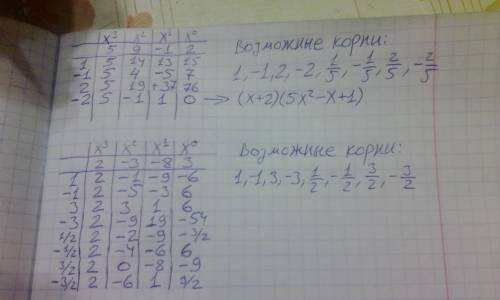 x³ x² x¹ x⁰
5 9 -1 2
1 5 14 13 15
-1 5 4 -5 7
2 5 19 +37 76
-2 5 -1 1 0 → (x+2)(5x²-x+1)
Возможние корни:
1, -1, 2, -2, 1/5, -1/5, 2/5, -2/5
x³ x² x¹ x⁰
2 -3 -8 3
1 2 -1 -9 -6
-1 2 -5 -3 6
3 2 3 1 6
-3 2 -9 19 -54
1/2 2 -2 -9 -3/2
-1/2 2 -4 -6 6
3/2 2 0 -8 -9
-3/2 2 -6 1 3/2
Возможные корни:
1, -1, 3, -3, 1/2, -1/2, 3/2, -3/2